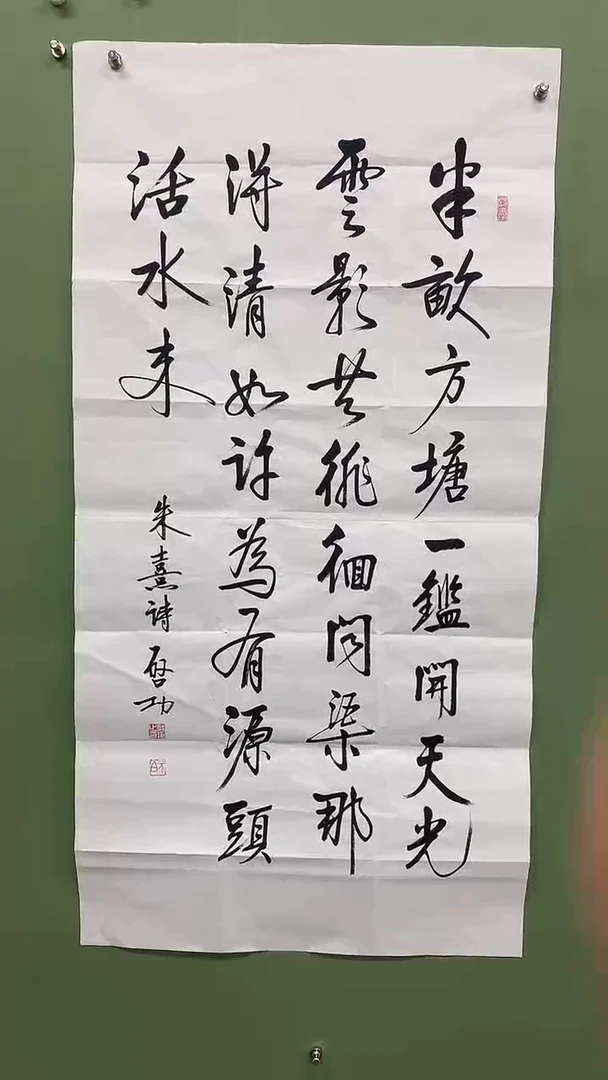 半畝方塘一鑑開天光
雲影共徘徊問渠那
得清如許為有源頭
活水来
朱熹詩 启功